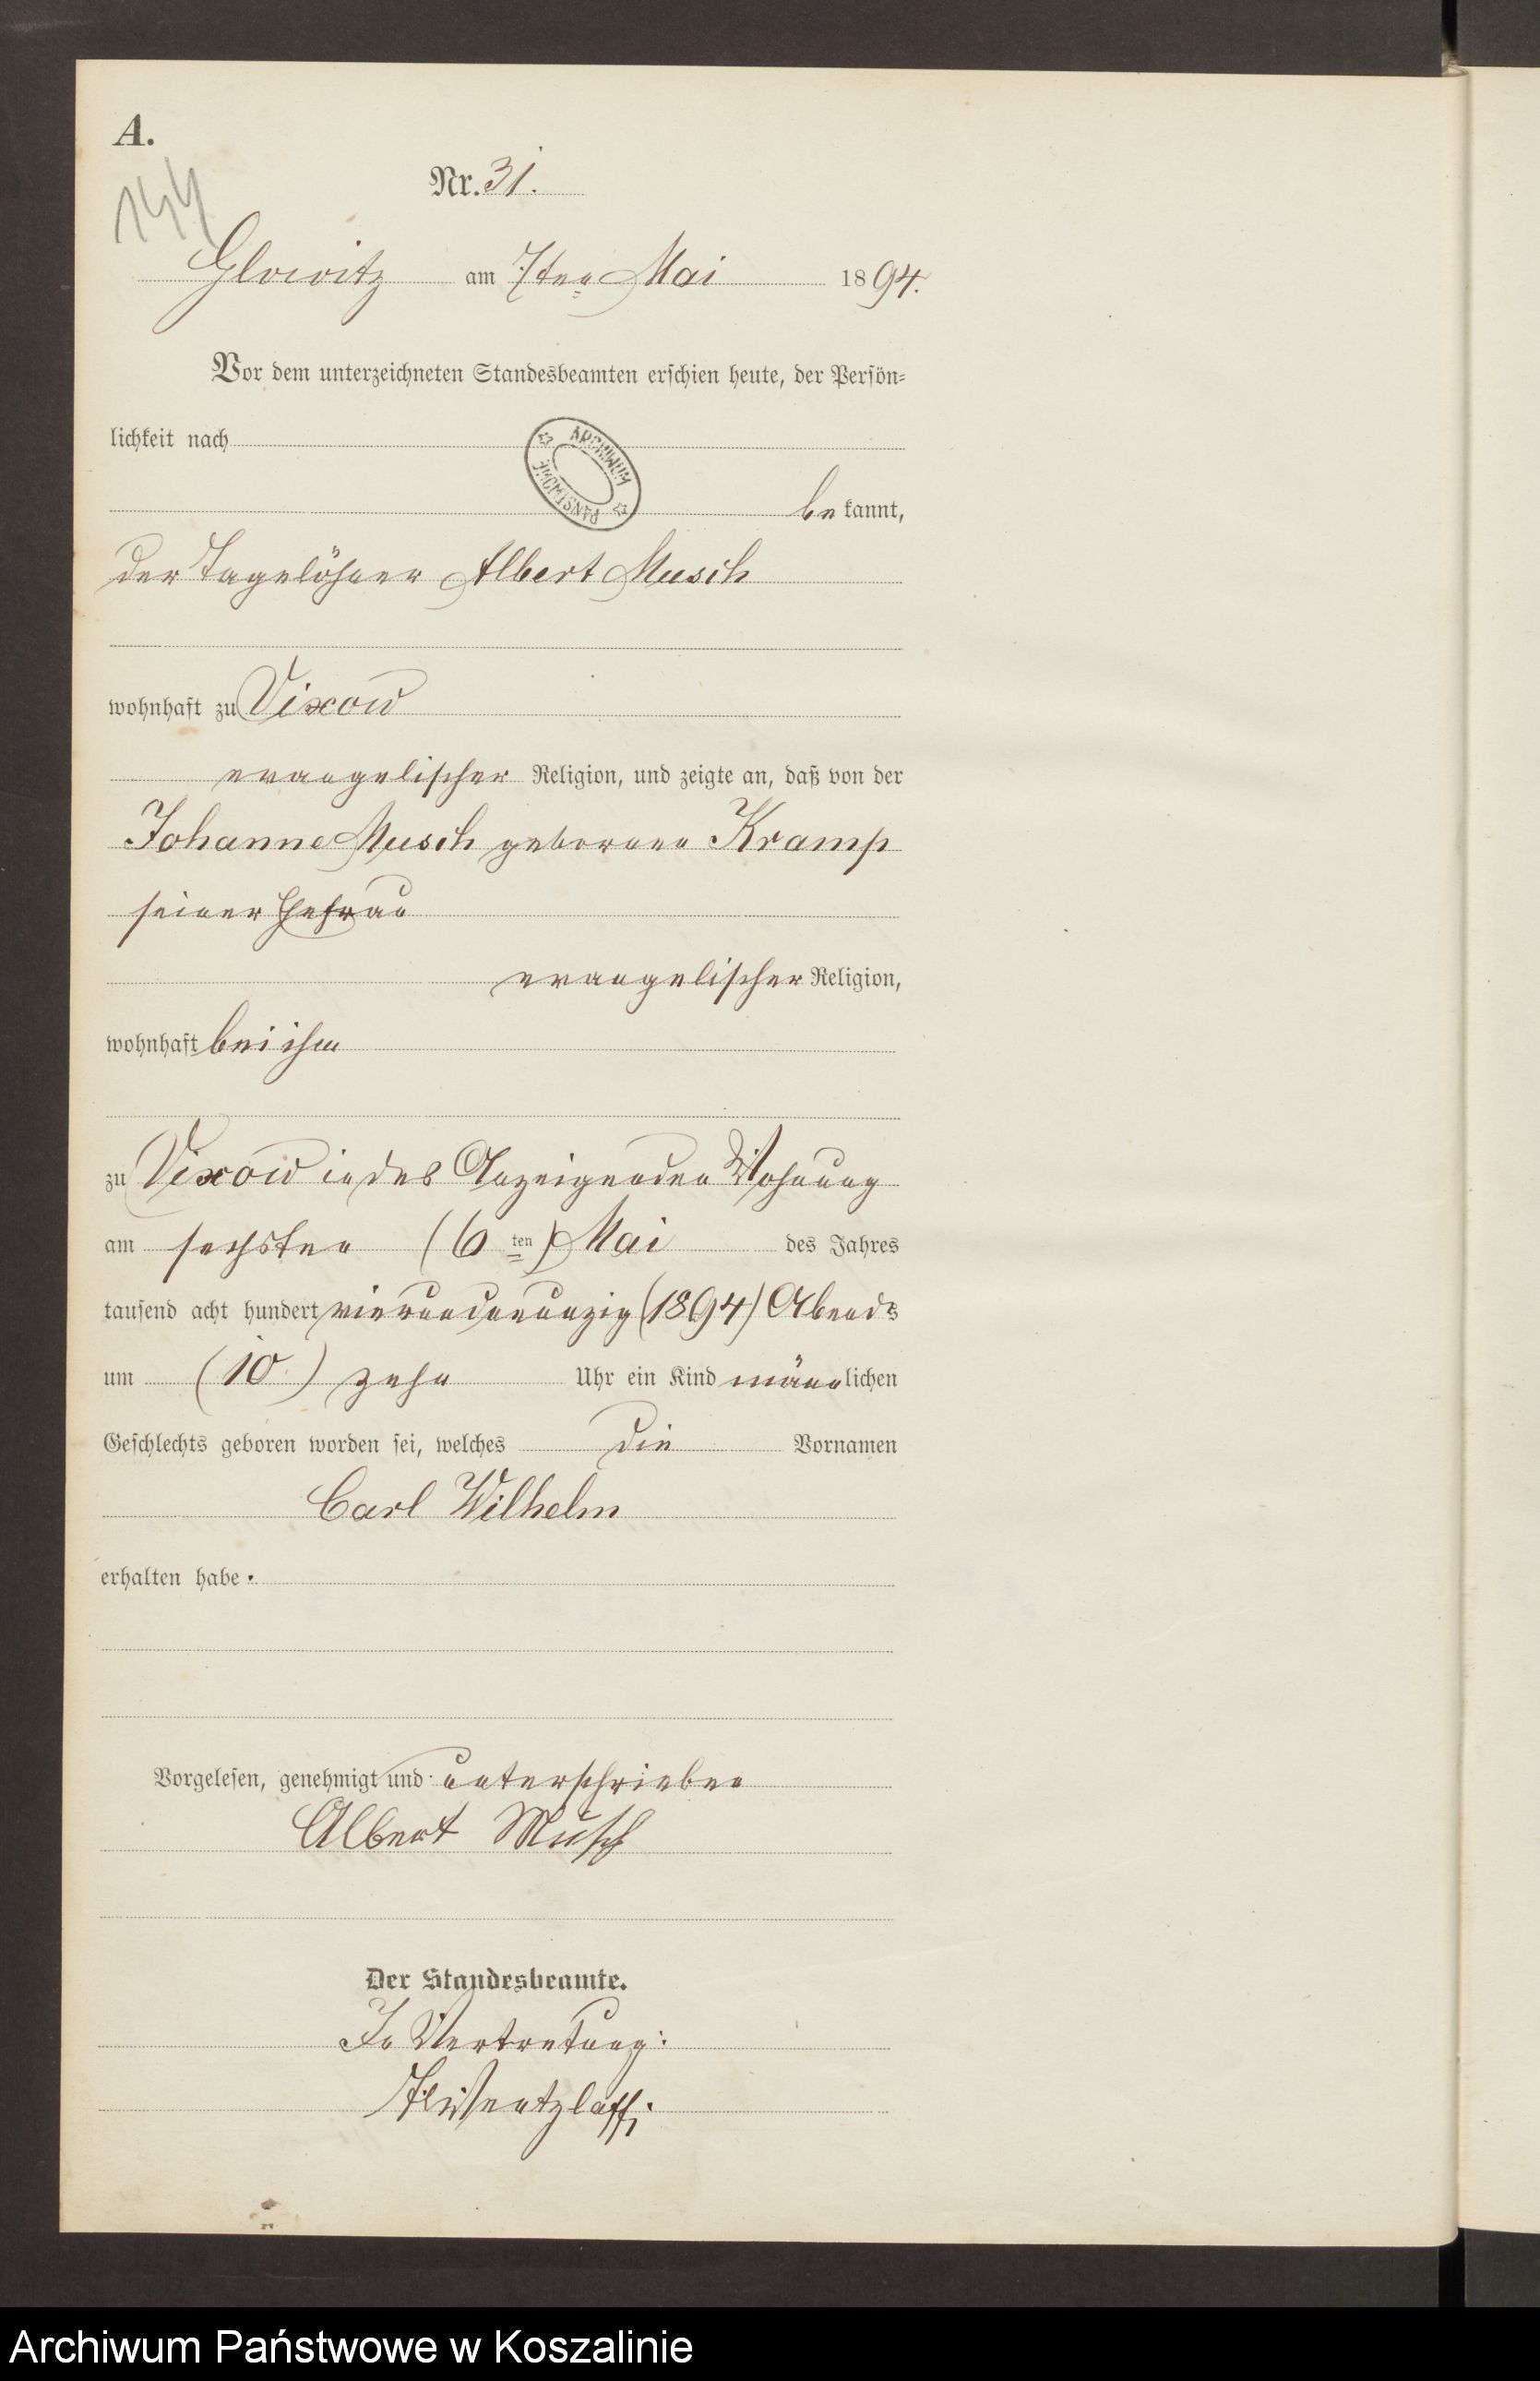 A.
144
Nr. 31.
Glowitz am 7ten Mai 1894.
Vor dem unterzeichneten Standesbeamten erschien heute, der Persön-
lichkeit nach
ARCHIWUM PAŃSTWOWE
bekannt,
der Tagelöhner Albert Musch
wohnhaft zu Vixow
evangelischer Religion, und zeigte an, daß von der
Johanne Musch geborenen Kramp
seiner Ehefrau
evangelischer Religion,
wohnhaft bei ihm
zu Vixow in des Anzeigenden Wohnung
am sechsten (6ten) Mai des Jahres
tausend acht hundert vierundneunzig (1894) Abends
um (10) zehn Uhr ein Kind männlichen
Geschlechts geboren worden sei, welches die Vornamen
Carl Wilhelm
erhalten habe.
Vorgelesen, genehmigt und unterschrieben
Albert Musch
Der Standesbeamte.
In Vertretung:
Archiwum Państwowe w Koszalinie